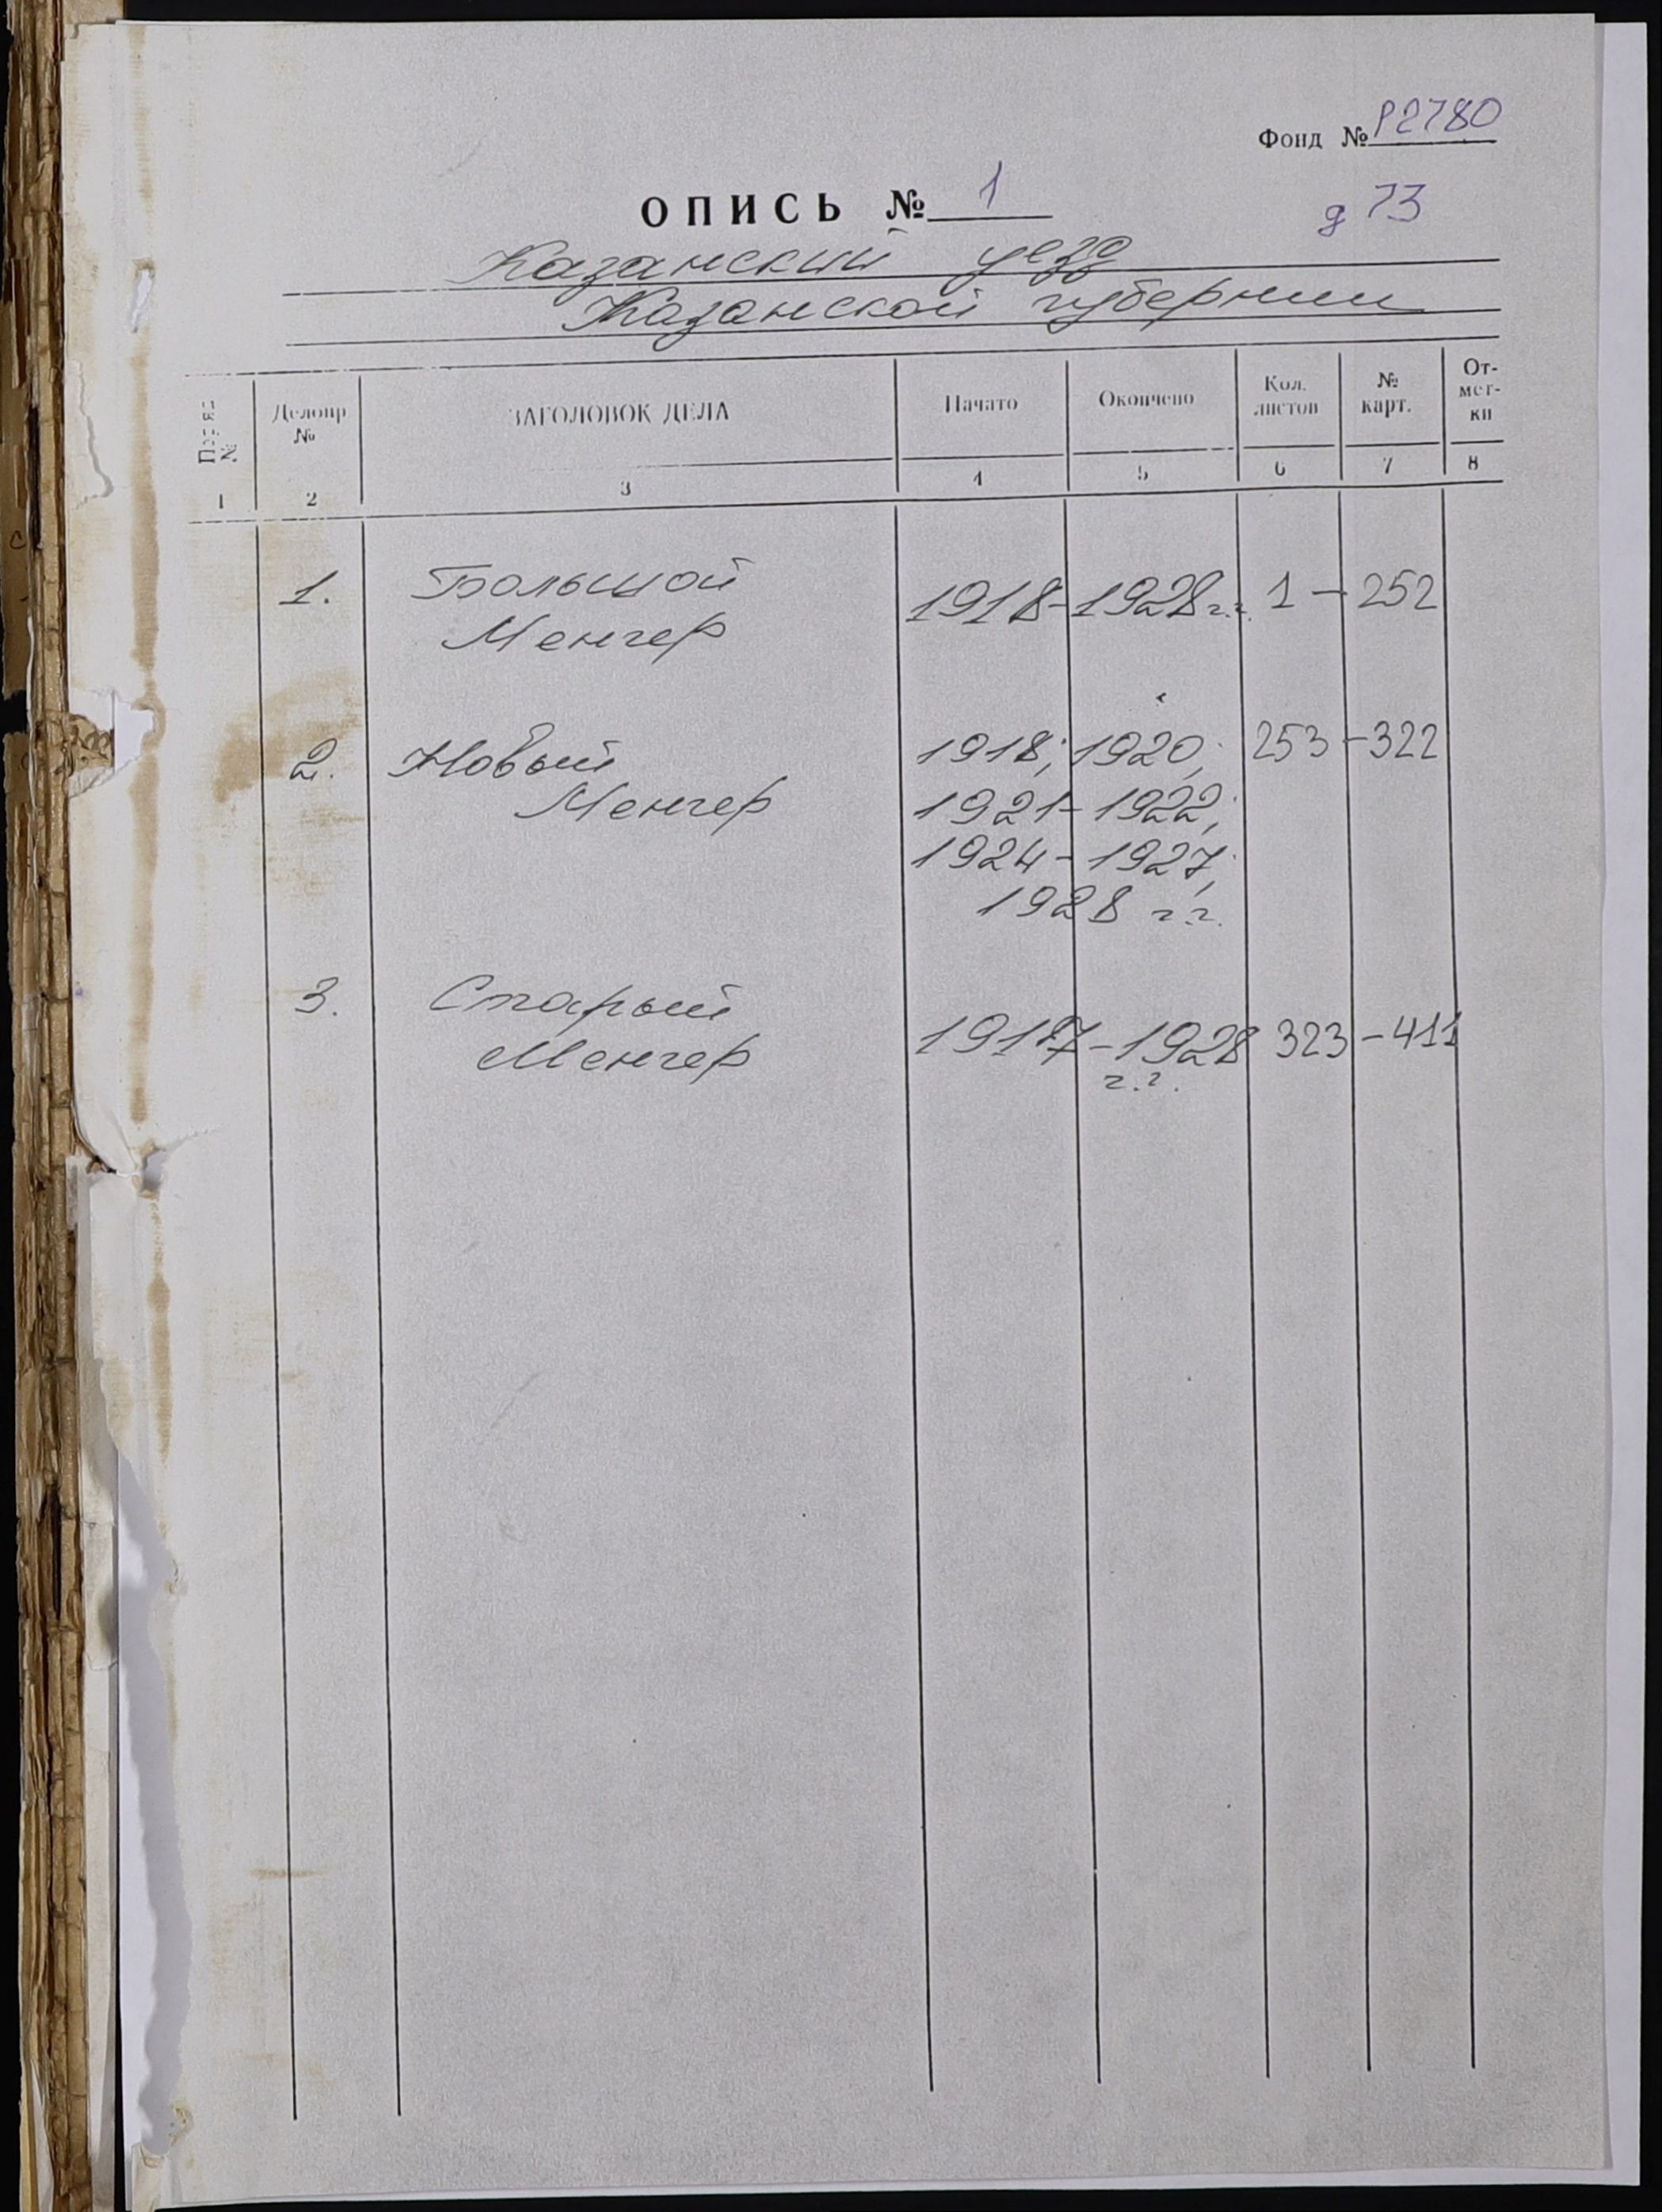 Фонд № Р2780
ОПИСЬ № 1
д 73
Казанский уезд
Казанской губернии
Делопр №
ЗАГОЛОВОК ДЕЛА
Начато
Окончено
Кол. листов
№ карт.
От-мет-ки
1 2 3 4 5 6 7 8
1. Большой 1918-1928 г.г. 1 - 252
Менгер
2. Новый 1918; 1920; 253 - 322
Менгер 1921 - 1922;
1924 - 1927;
1928 г.г.
3. Старый
Менгер 1917 - 1928 323 - 411
г.г.